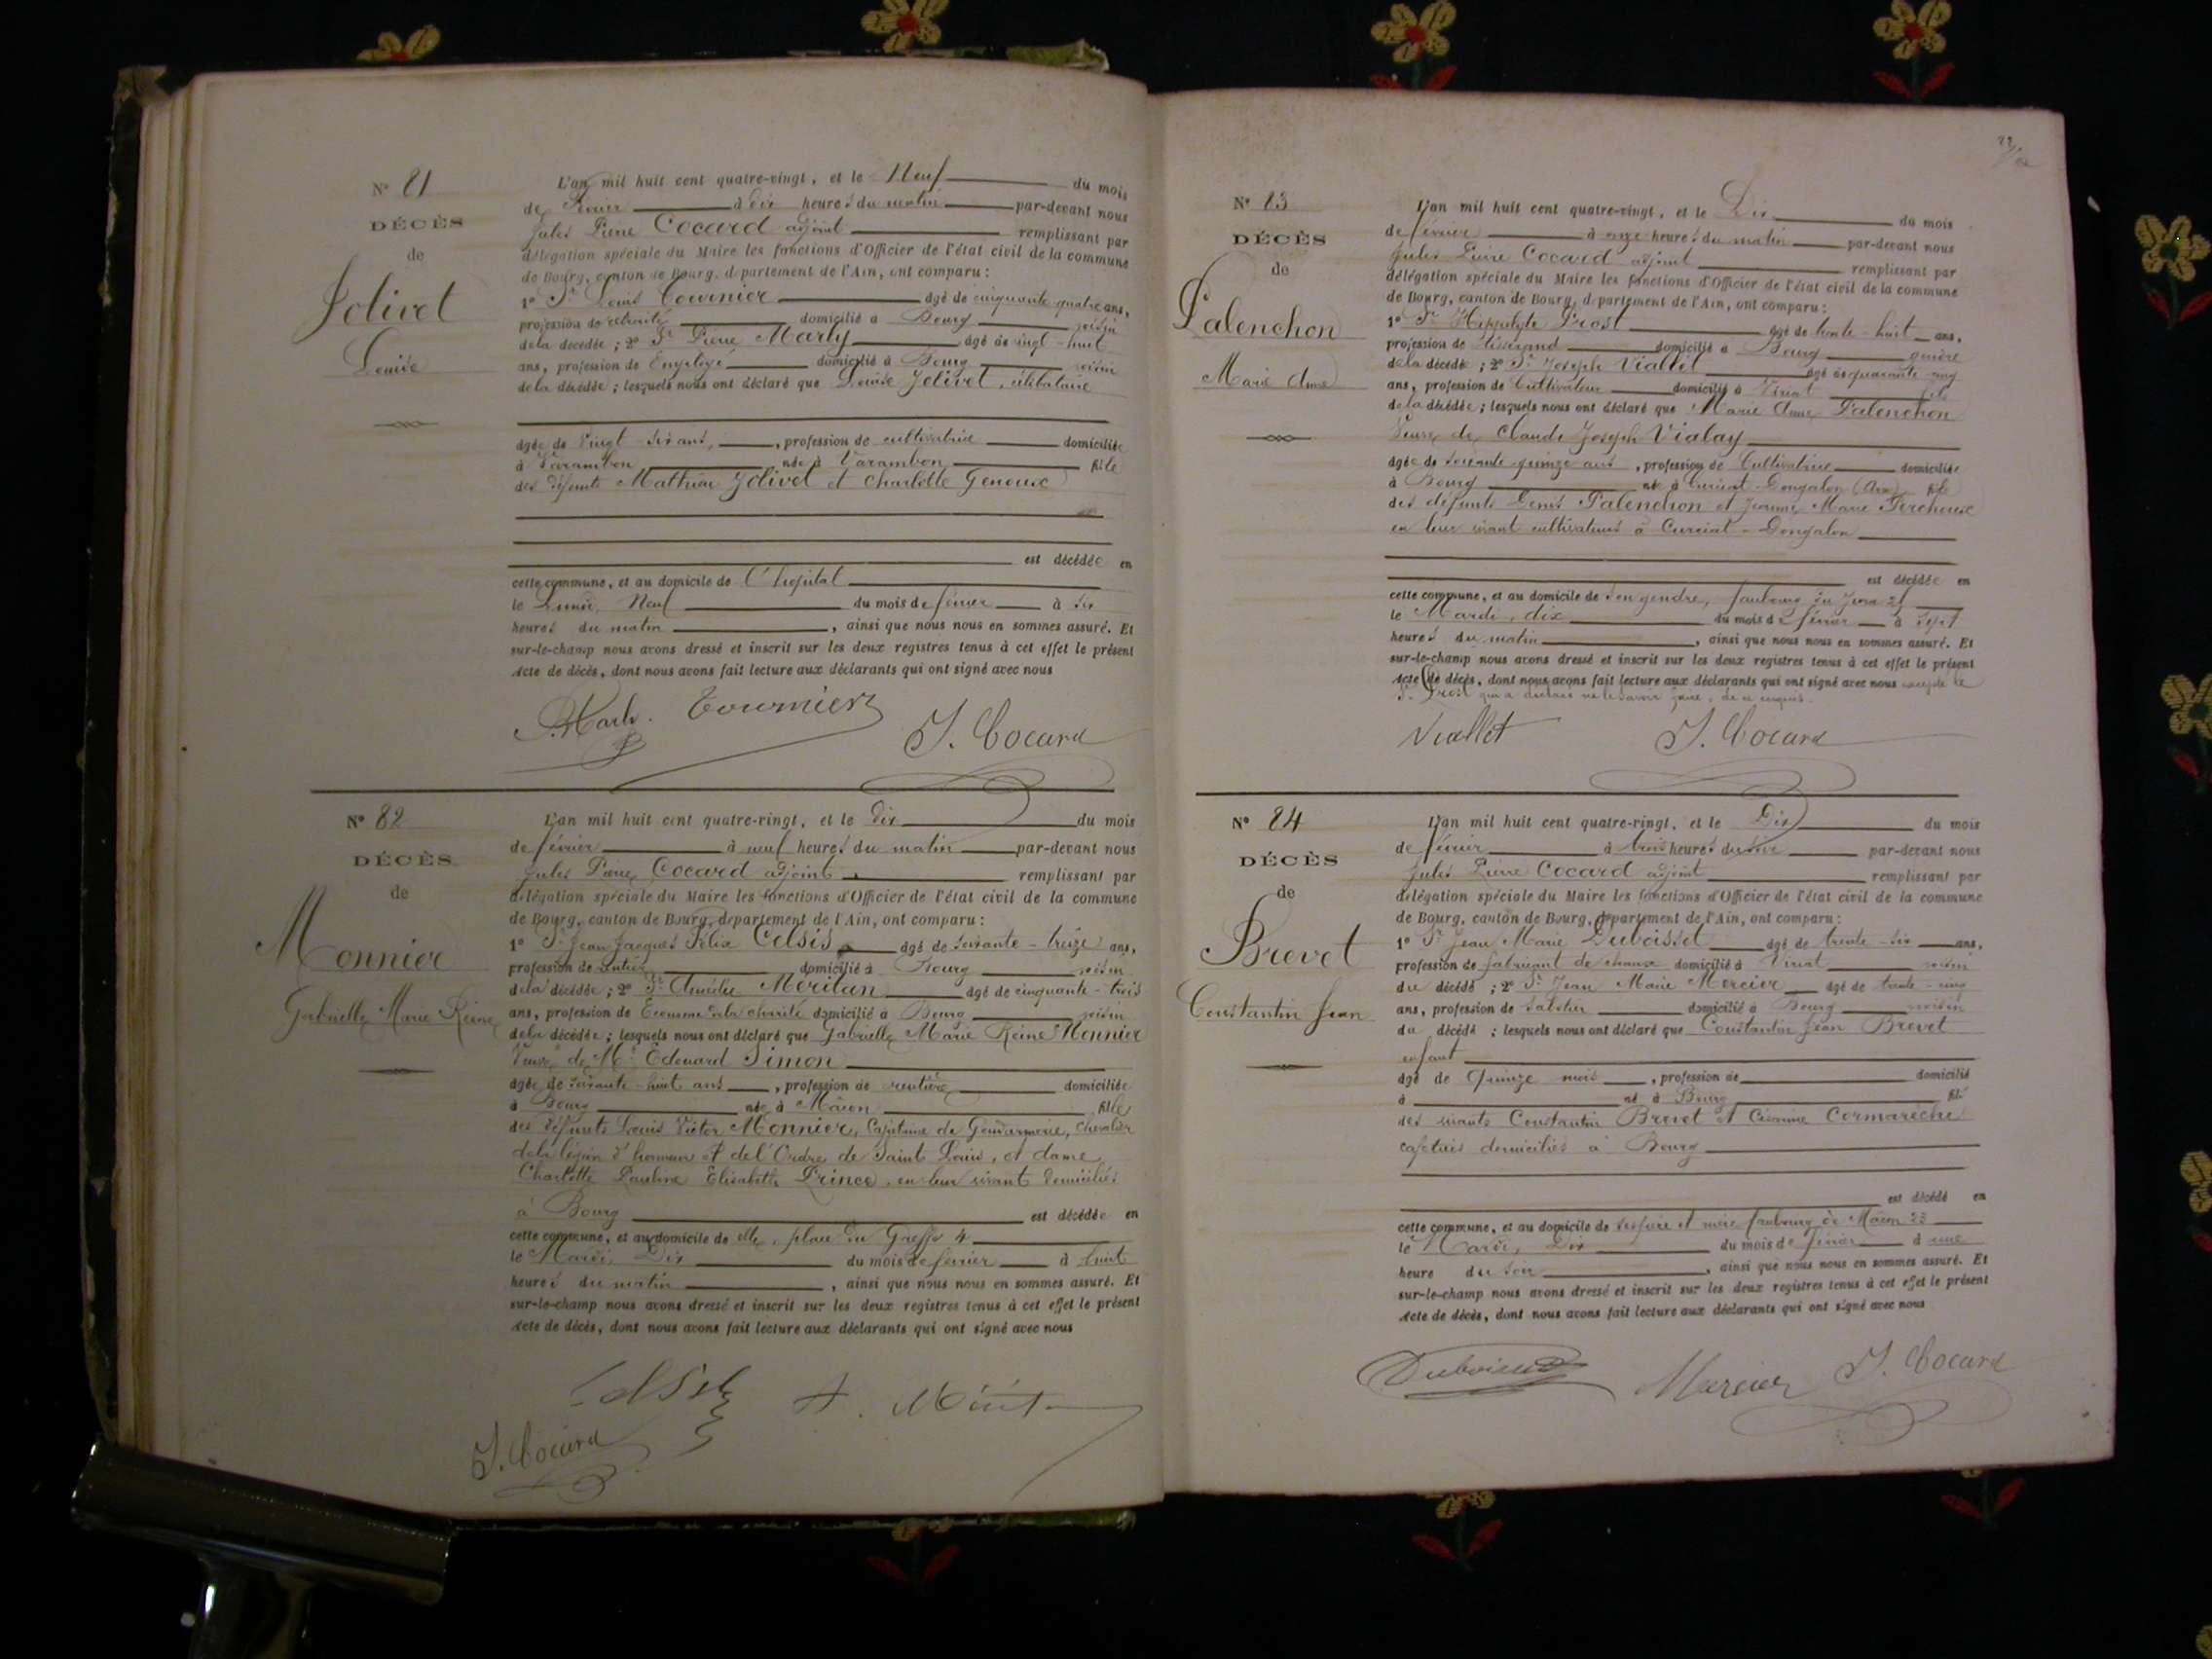 N° 81
DÉCÈS
de
Jolivet
Louise
L'an mil huit cent quatre-vingt, et le Neuf du mois
de Février à dix heures du matin par-devant nous
Jules Pierre Cocard adjoint remplissant par
délégation spéciale du Maire les fonctions d'Officier de l'état civil de la commune
de Bourg, canton de Bourg, département de l'Ain, ont comparu :
1° Sr Louis Tournier âgé de cinquante-quatre ans,
profession de retraité domicilié à Bourg voisin
de la décédée ; 2° Sr Pierre Marly âgé de vingt-huit
ans, profession de Employé domicilié à Bourg voisin
de la décédée ; lesquels nous ont déclaré que Louise Jolivet, célibataire
agée de Vingt six ans, profession de cultivatrice domiciliée
à Varambon née à Varambon fille
des défunts Mathieu Jolivet et Charlotte Genoux
est décédée en
cette commune, et au domicile de l'hopital
le Lundi, Neuf du mois de février à six
heures du matin, ainsi que nous nous en sommes assuré. Et
sur-le-champ nous avons dressé et inscrit sur les deux registres tenus à cet effet le présent
Acte de décès, dont nous avons fait lecture aux déclarants qui ont signé avec nous
Tournier
J. Cocard
N° 82
DÉCÈS
de
Monnier
Gabrielle Marie Reine
L'an mil huit cent quatre-vingt, et le Dix du mois
de février à neuf heures du matin par-devant nous
Jules Pierre Cocard adjoint remplissant par
délégation spéciale du Maire les fonctions d'Officier de l'état civil de la commune
de Bourg, canton de Bourg, département de l'Ain, ont comparu :
1° Sr Jean Jacques Félix Celsis âgé de soixante-treize ans,
profession de rentier domicilié à Bourg voisin
de la décédée ; 2° Sr Amédée Méritan âgé de cinquante-trois
ans, profession de Econome de la charité domicilié à Bourg voisin
de la décédée ; lesquels nous ont déclaré que Gabrielle Marie Reine Monnier
Veuve de Mr Edouard Simon
agée de soixante-huit ans, profession de rentière domiciliée
à Bourg née à Mâcon fille
des défunts Louis Victor Monnier, Capitaine de Gendarmerie, chevalier
de la légion d'honneur et de l'Ordre de Saint Louis, et dame
Charlotte Pauline Elisabeth Prince, en leur vivant domiciliés
à Bourg est décédée en
cette commune, et au domicile de elle, place du Greffe 4
le Mardi, Dix du mois de février à huit
heures du matin, ainsi que nous nous en sommes assuré. Et
sur-le-champ nous avons dressé et inscrit sur les deux registres tenus à cet effet le présent
Acte de décès, dont nous avons fait lecture aux déclarants qui ont signé avec nous
Celsis
J. Cocard
N° 83
DÉCÈS
de
Palenchon
Marie Anne
L'an mil huit cent quatre-vingt, et le Dix du mois
de février à onze heures du matin par-devant nous
Jules Pierre Cocard adjoint remplissant par
délégation spéciale du Maire les fonctions d'Officier de l'état civil de la commune
de Bourg, canton de Bourg, département de l'Ain, ont comparu :
1° Sr Hippolyte Prost âgé de trente-huit ans,
profession de Tisserand domicilié à Bourg gendre
de la décédée ; 2° Sr Joseph Viallet âgé de quarante-cinq
ans, profession de Cultivateur domicilié à Viriat fils
de la décédée ; lesquels nous ont déclaré que Marie Anne Palenchon
Veuve de Claude Joseph Vialay
agée de soixante-quinze ans, profession de Cultivatrice domiciliée
à Bourg née à Curciat-Dongalon (Ain) fille
des défunts Denis Palenchon et Jeanne Marie Perchoux
en leur vivant cultivateurs à Curciat-Dongalon
est décédée en
cette commune, et au domicile de son gendre, faubourg du Jura 21
le Mardi, dix du mois de février à sept
heures du matin, ainsi que nous nous en sommes assuré. Et
sur-le-champ nous avons dressé et inscrit sur les deux registres tenus à cet effet le présent
Acte de décès, dont nous avons fait lecture aux déclarants qui ont signé avec nous excepté le
Sr Prost qui a déclaré ne le savoir faire, de ce requis.
Viallet
J. Cocard
N° 84
DÉCÈS
de
Brevet
Constantin Jean
L'an mil huit cent quatre-vingt, et le Dix du mois
de février à trois heures du soir par-devant nous
Jules Pierre Cocard adjoint remplissant par
délégation spéciale du Maire les fonctions d'Officier de l'état civil de la commune
de Bourg, canton de Bourg, département de l'Ain, ont comparu :
1° Sr Jean Marie Duboisset âgé de trente-six ans,
profession de fabricant de chaux domicilié à Viriat voisin
du décédé ; 2° Sr Jean Marie Mercier âgé de trente-cinq
ans, profession de Sabotier domicilié à Bourg voisin
du décédé ; lesquels nous ont déclaré que Constantin Jean Brevet
enfant
agé de Quinze mois, profession de domicilié
à né à Bourg fils
des vivants Constantin Brevet et Cormarèche
cafetiers domiciliés à Bourg
est décédé en
cette commune, et au domicile de ses père et mère faubourg de Mâcon 23
le Mardi, Dix du mois de février à une
heure du soir, ainsi que nous nous en sommes assuré. Et
sur-le-champ nous avons dressé et inscrit sur les deux registres tenus à cet effet le présent
Acte de décès, dont nous avons fait lecture aux déclarants qui ont signé avec nous
Mercier
J. Cocard